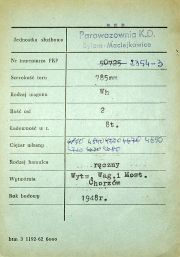 Jednostka służbowa
Parowozownia K.D.
Bytom-Maciejkowice
Nr inwentarza PKP 50725-2354-3
Szerokość toru 785mm
Rodzaj wagonu Wh
Ilość osi 2
Ładowność w t. 8t.
Ciężar własny
Rodzaj hamulca ręczny
Wytwórnia Wytw. Wag. i Most.
Chorzów
Rok budowy 1948r.